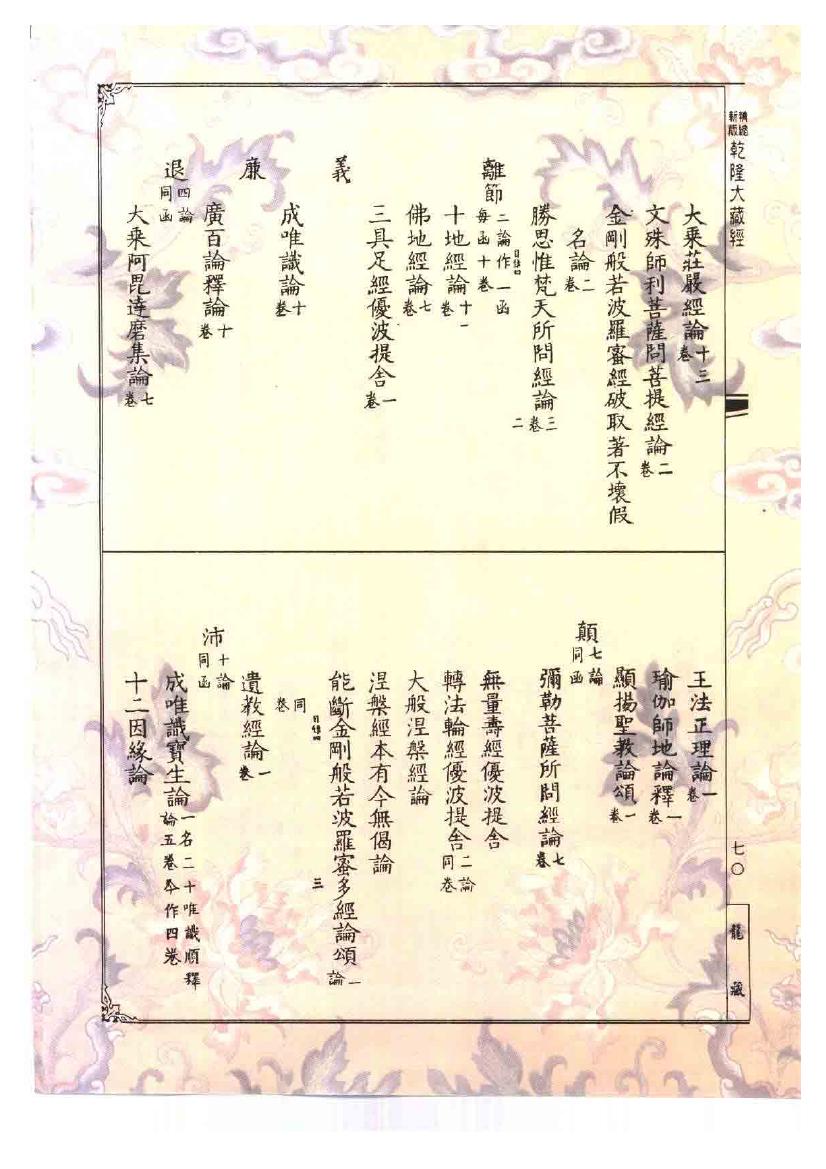 精縮新版 乾隆大藏經
大乘莊嚴經論十三卷
文殊師利菩薩問菩提經論二卷
金剛般若波羅蜜經破取著不壞假
名論二卷
勝思惟梵天所問經論三卷
二
目錄四
離節二論作一函每函十卷
十地經論十一卷
佛地經論七卷
三具足經優波提舍一卷
義
成唯識論十卷
廉
廣百論釋論十卷
退四論同函
大乘阿毘達磨集論七卷
王法正理論一卷
瑜伽師地論釋一卷
顯揚聖教論頌一卷
顛七論同函
彌勒菩薩所問經論七卷
無量壽經優波提舍
轉法輪經優波提舍二論同卷
大般涅槃經論
涅槃經本有今無偈論
能斷金剛般若波羅蜜多經論頌一論
三
目錄四
同卷
遺教經論一卷
沛十論同函
成唯識寶生論一名二十唯識順釋論五卷今作四卷
十二因緣論
七〇
龍藏